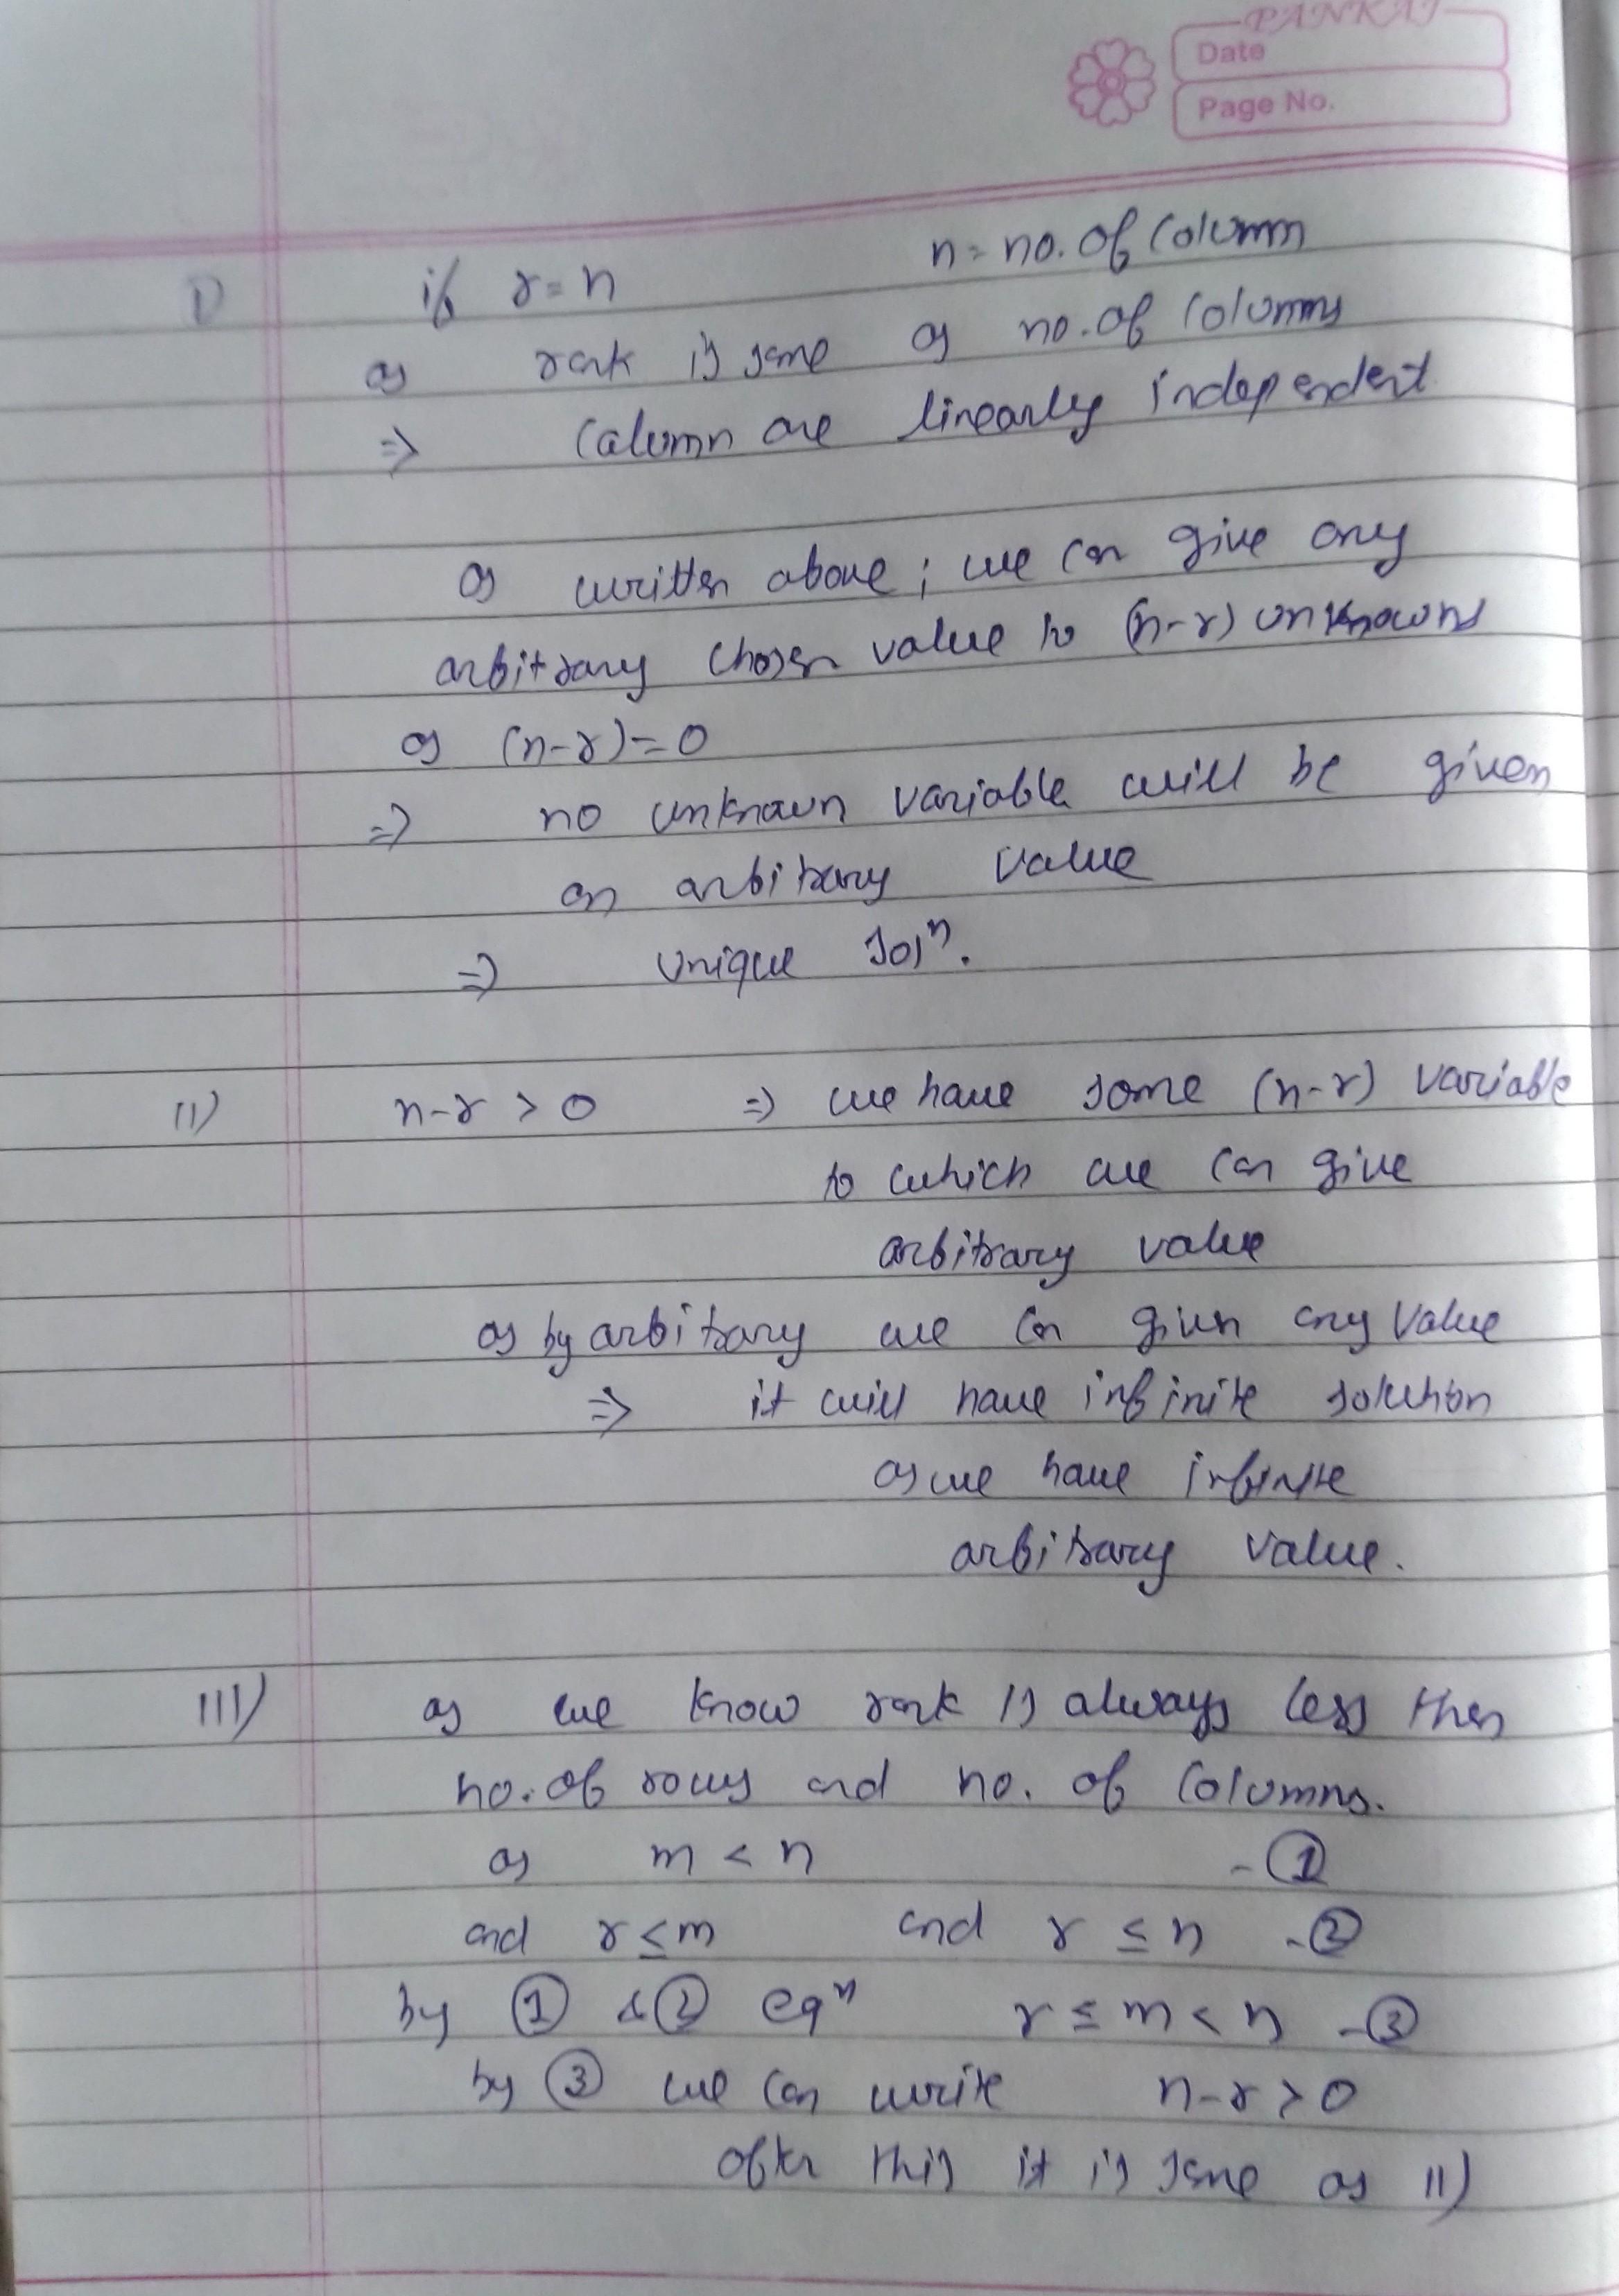 PANKAJ
Date
Page No.
n = no. of column
I) if r = n
as rank is same as no. of columns
=> Column are linearly independent
as written above ; we can give any
arbitrary chosen value to (n-r) unknowns
as (n-r) = 0
=> no unknown variable will be given
an arbitrary value
=> unique solⁿ.
II) n-r > 0 => we have some (n-r) variable
to which we can give
arbitrary value
as by arbitrary we can given any value
=> it will have infinite solution
as we have infinite
arbitrary value.
III) as we know rank is always less then
no. of rows and no. of columns.
as m < n - ①
and r ≤ m and r ≤ n - ②
by ① & ② eqⁿ r ≤ m < n - ③
by ③ we can write n-r > 0
after this it is same as II)